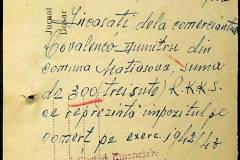 Jurnal
Dosar
Încasati dela comerciantul
Covalenco Dumitru din
comuna Mateasova suma
de 300 (trei sute) R.K.K.S.
ce reprezintă impozitul pe
comert pe exerc. 1942/43
Financiare